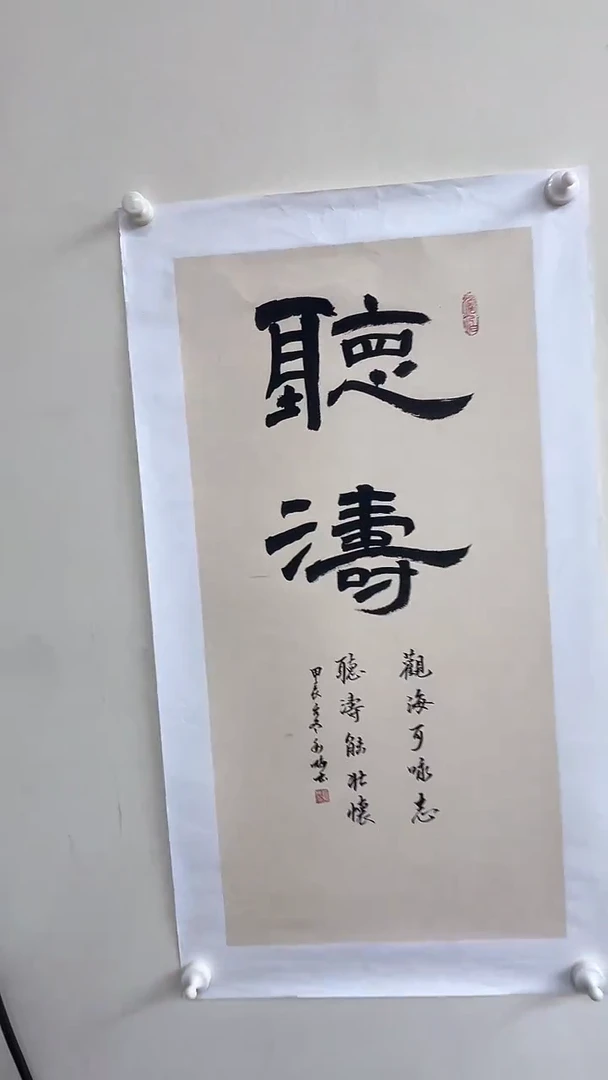 聽濤
觀海可咏志
聽濤能壯懷
甲辰